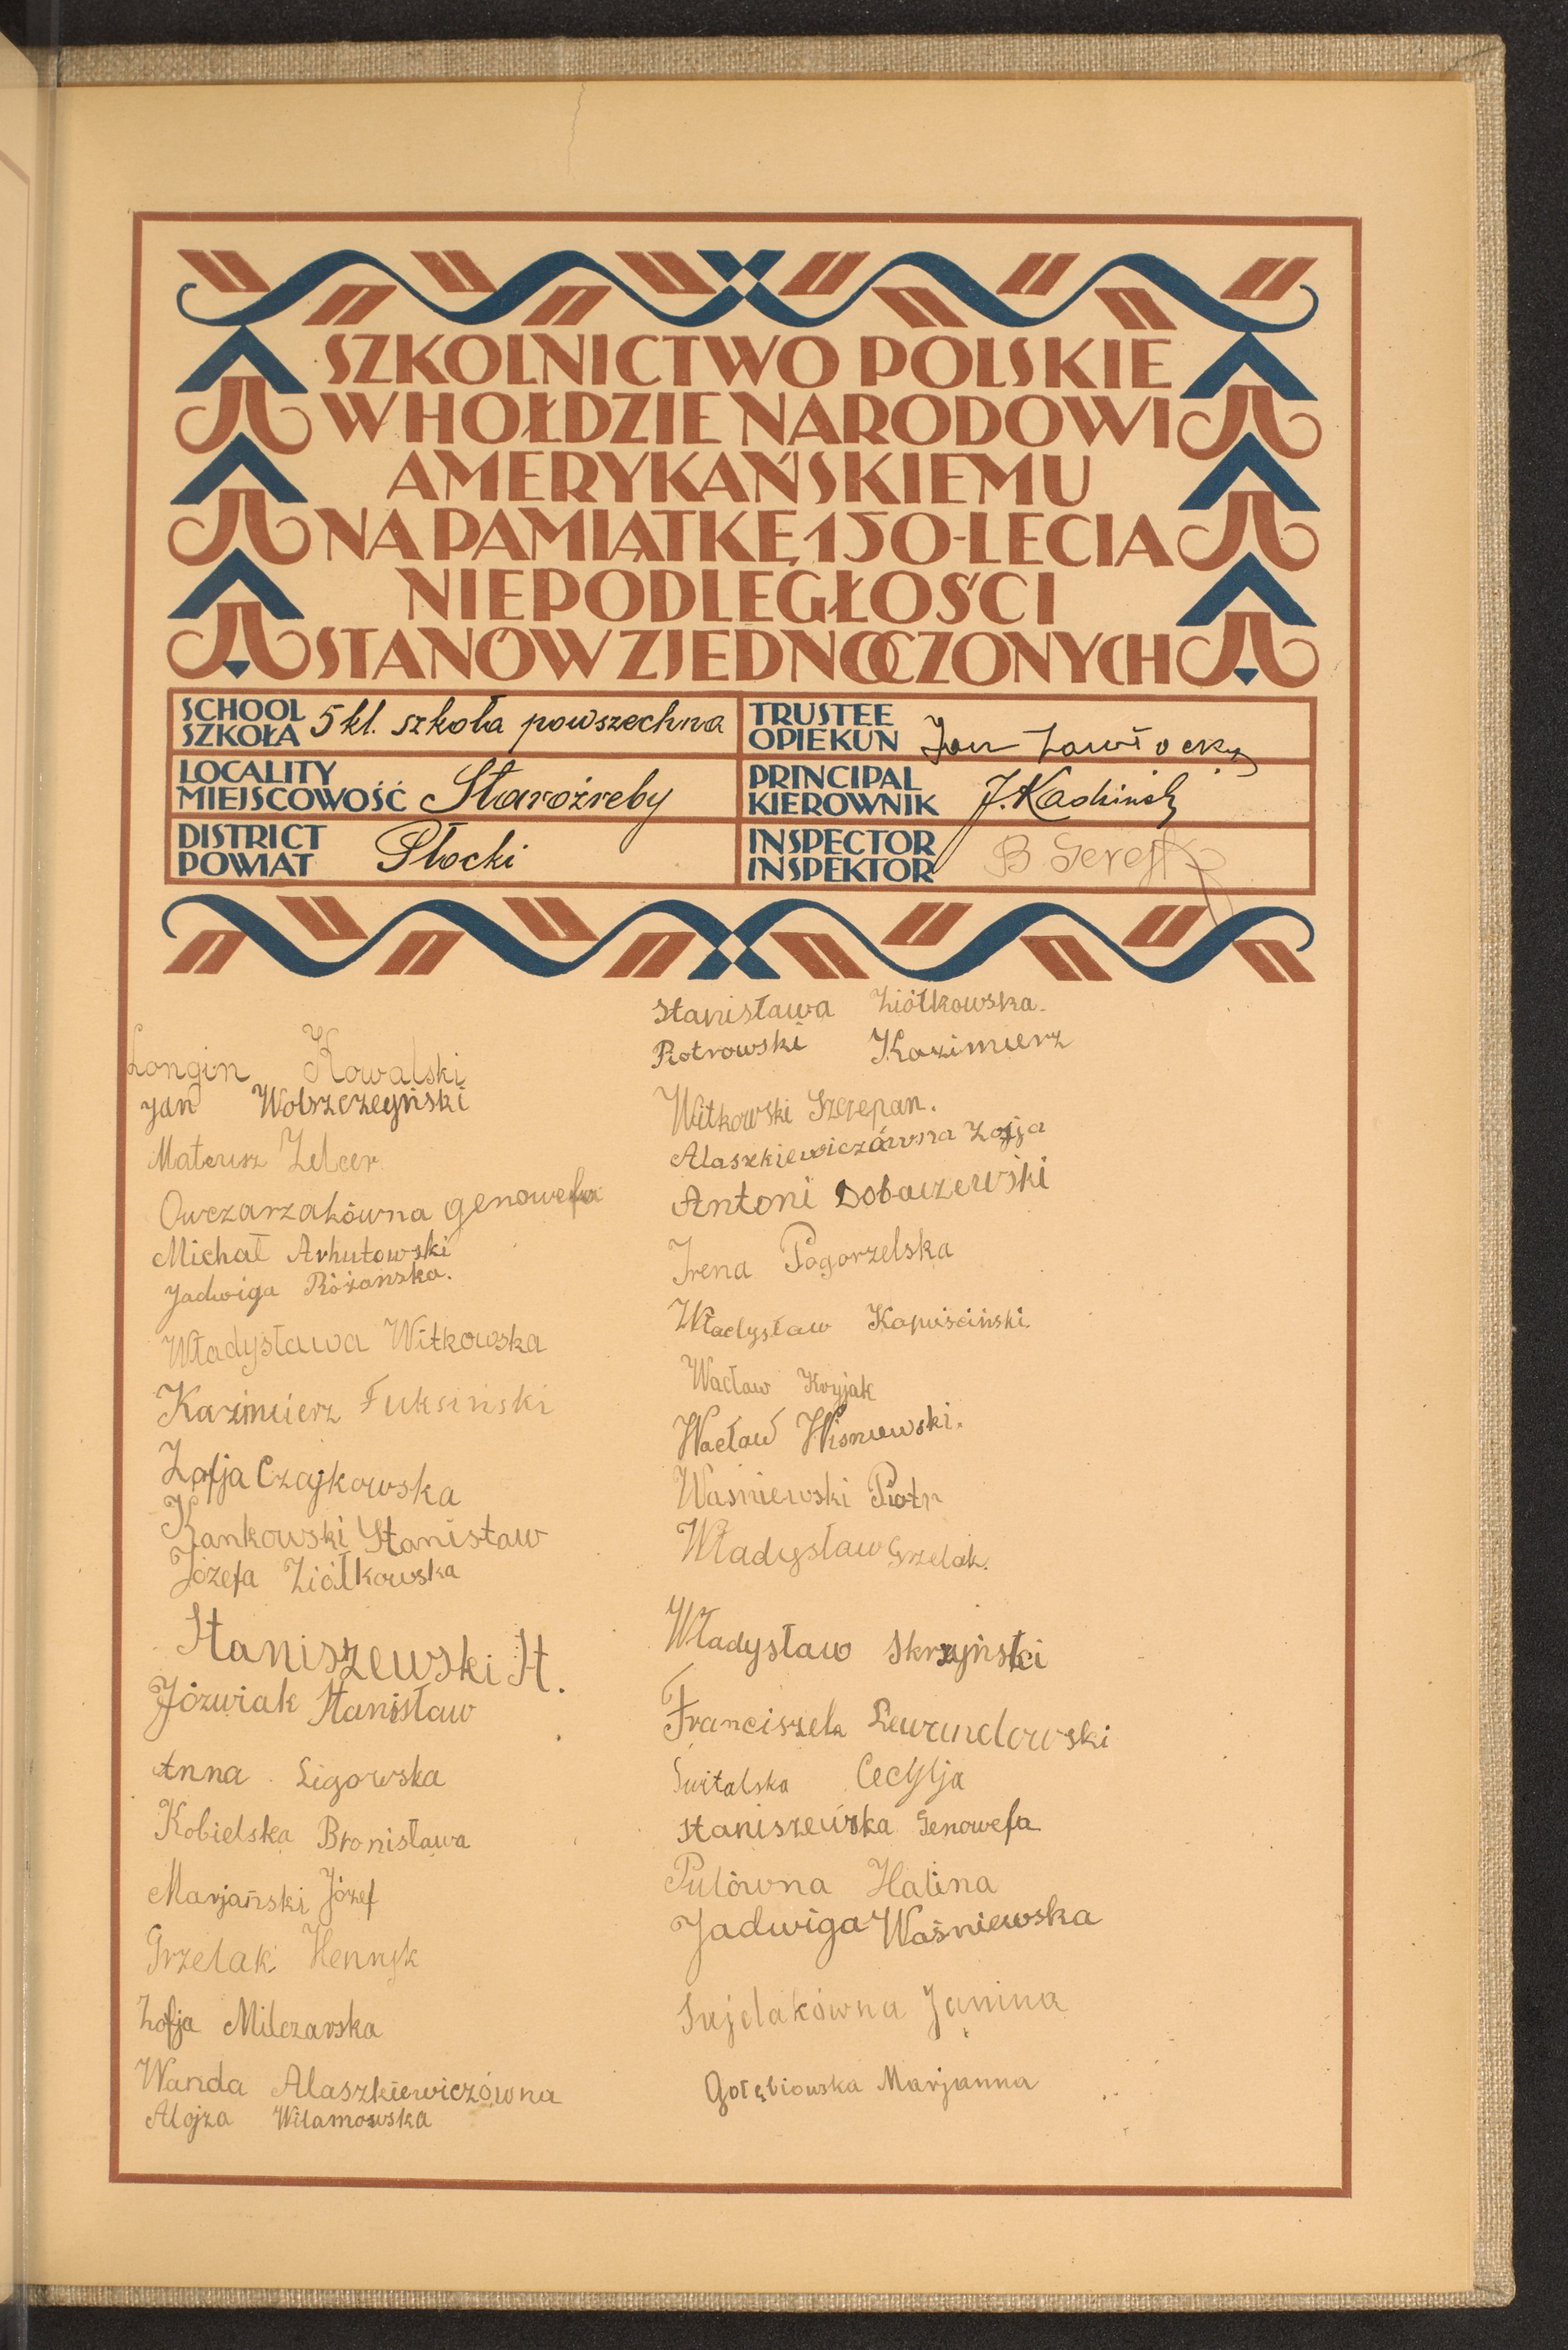 SZKOLNICTWO POLSKIE
W HOŁDZIE NARODOWI
AMERYKAŃSKIEMU
NA PAMIĄTKĘ 150-LECIA
NIEPODLEGŁOŚCI
STANÓW ZJEDNOCZONYCH
SCHOOL
SZKOŁA
5 kl. szkoła powszechna
TRUSTEE
OPIEKUN
Jan Zawłocky
LOCALITY
MIEJSCOWOŚĆ
Staroźreby
PRINCIPAL
KIEROWNIK
J. Kadziński
DISTRICT
POWIAT
Płocki
INSPECTOR
INSPEKTOR
B.
Longin Kowalski
Jan Wolszczeyński
Mateusz Zelcer
Owczarzakówna Genowefa
Michał Arhutowski
Jadwiga Różańska.
Władysława Witkowska
Kazimierz Fuksiński
Zofja Czajkowska
Kankowski Stanisław
Józefa Ziółkowska
Staniszewski St.
Józwiak Stanisław
Anna Ligowska
Kobielska Bronisława
Marjański Józef
Grzelak Henryk
Zofja Milczarska
Wanda Alaszkiewiczówna
Alojza Wilamowska
Stanisława Ziółkowska.
Piotrowski Kazimierz
Witkowski Szczepan.
Alaszkiewiczówna Zofja
Antoni Dobaczewski
Irena Pogorzelska
Władysław Kapuściński
Wacław Kryjak
Wacław Wisniewski.
Waśniewski Piotr
Władysław Grzelak.
Władysław Skrzyński
Franciszek Lewandowski
Świtalska Cecylja
Staniszewska Genowefa
Pulówna Halina
Jadwiga Waśniewska
Janina
Gołębiowska Marjanna